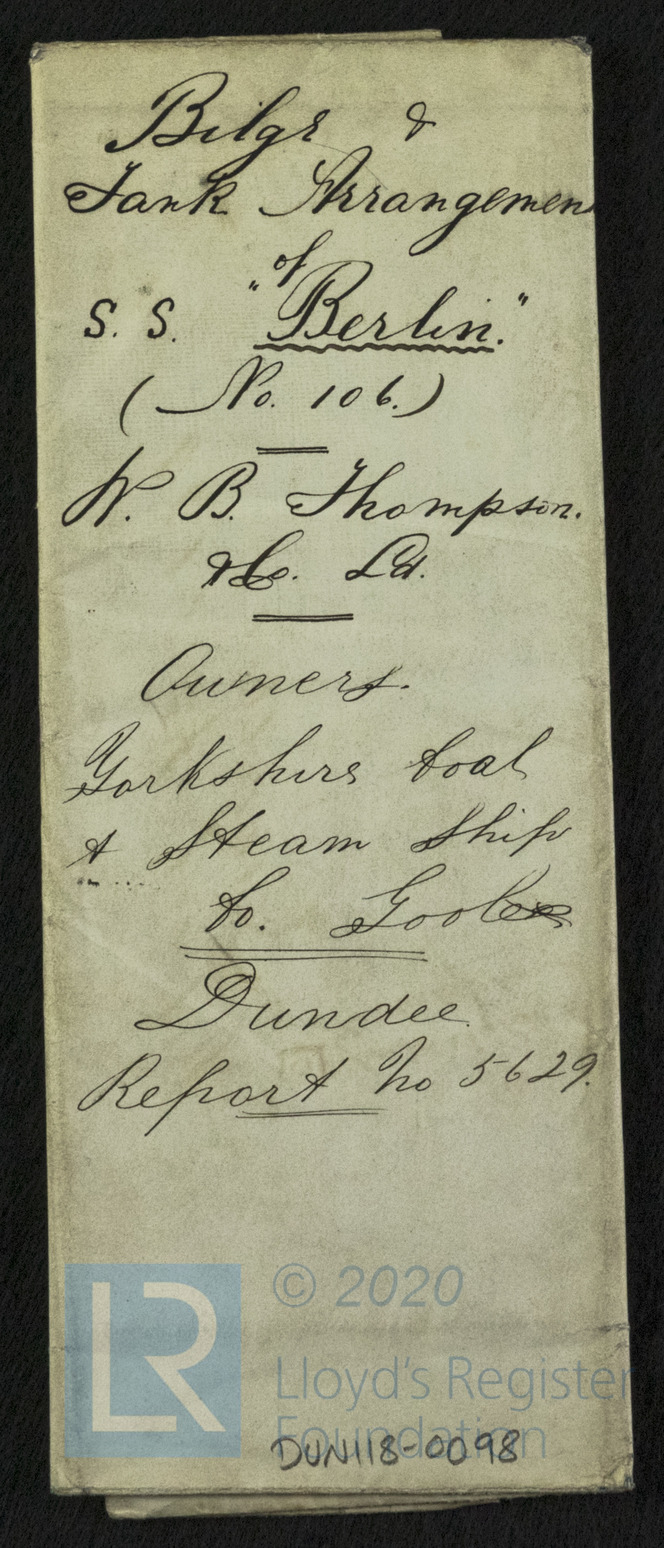 Bilge &
Tank Arrangemen
of
S. S. "Berlin."
(No. 106.)
W. B. Thompson.
& Co. Ld.
Owners.
Yorkshire Coal
& Steam Ship
Co. Goole
Dundee
Report No 5629.
© 2020
LR
Lloyd's Register
Foundation
DUN118-0098